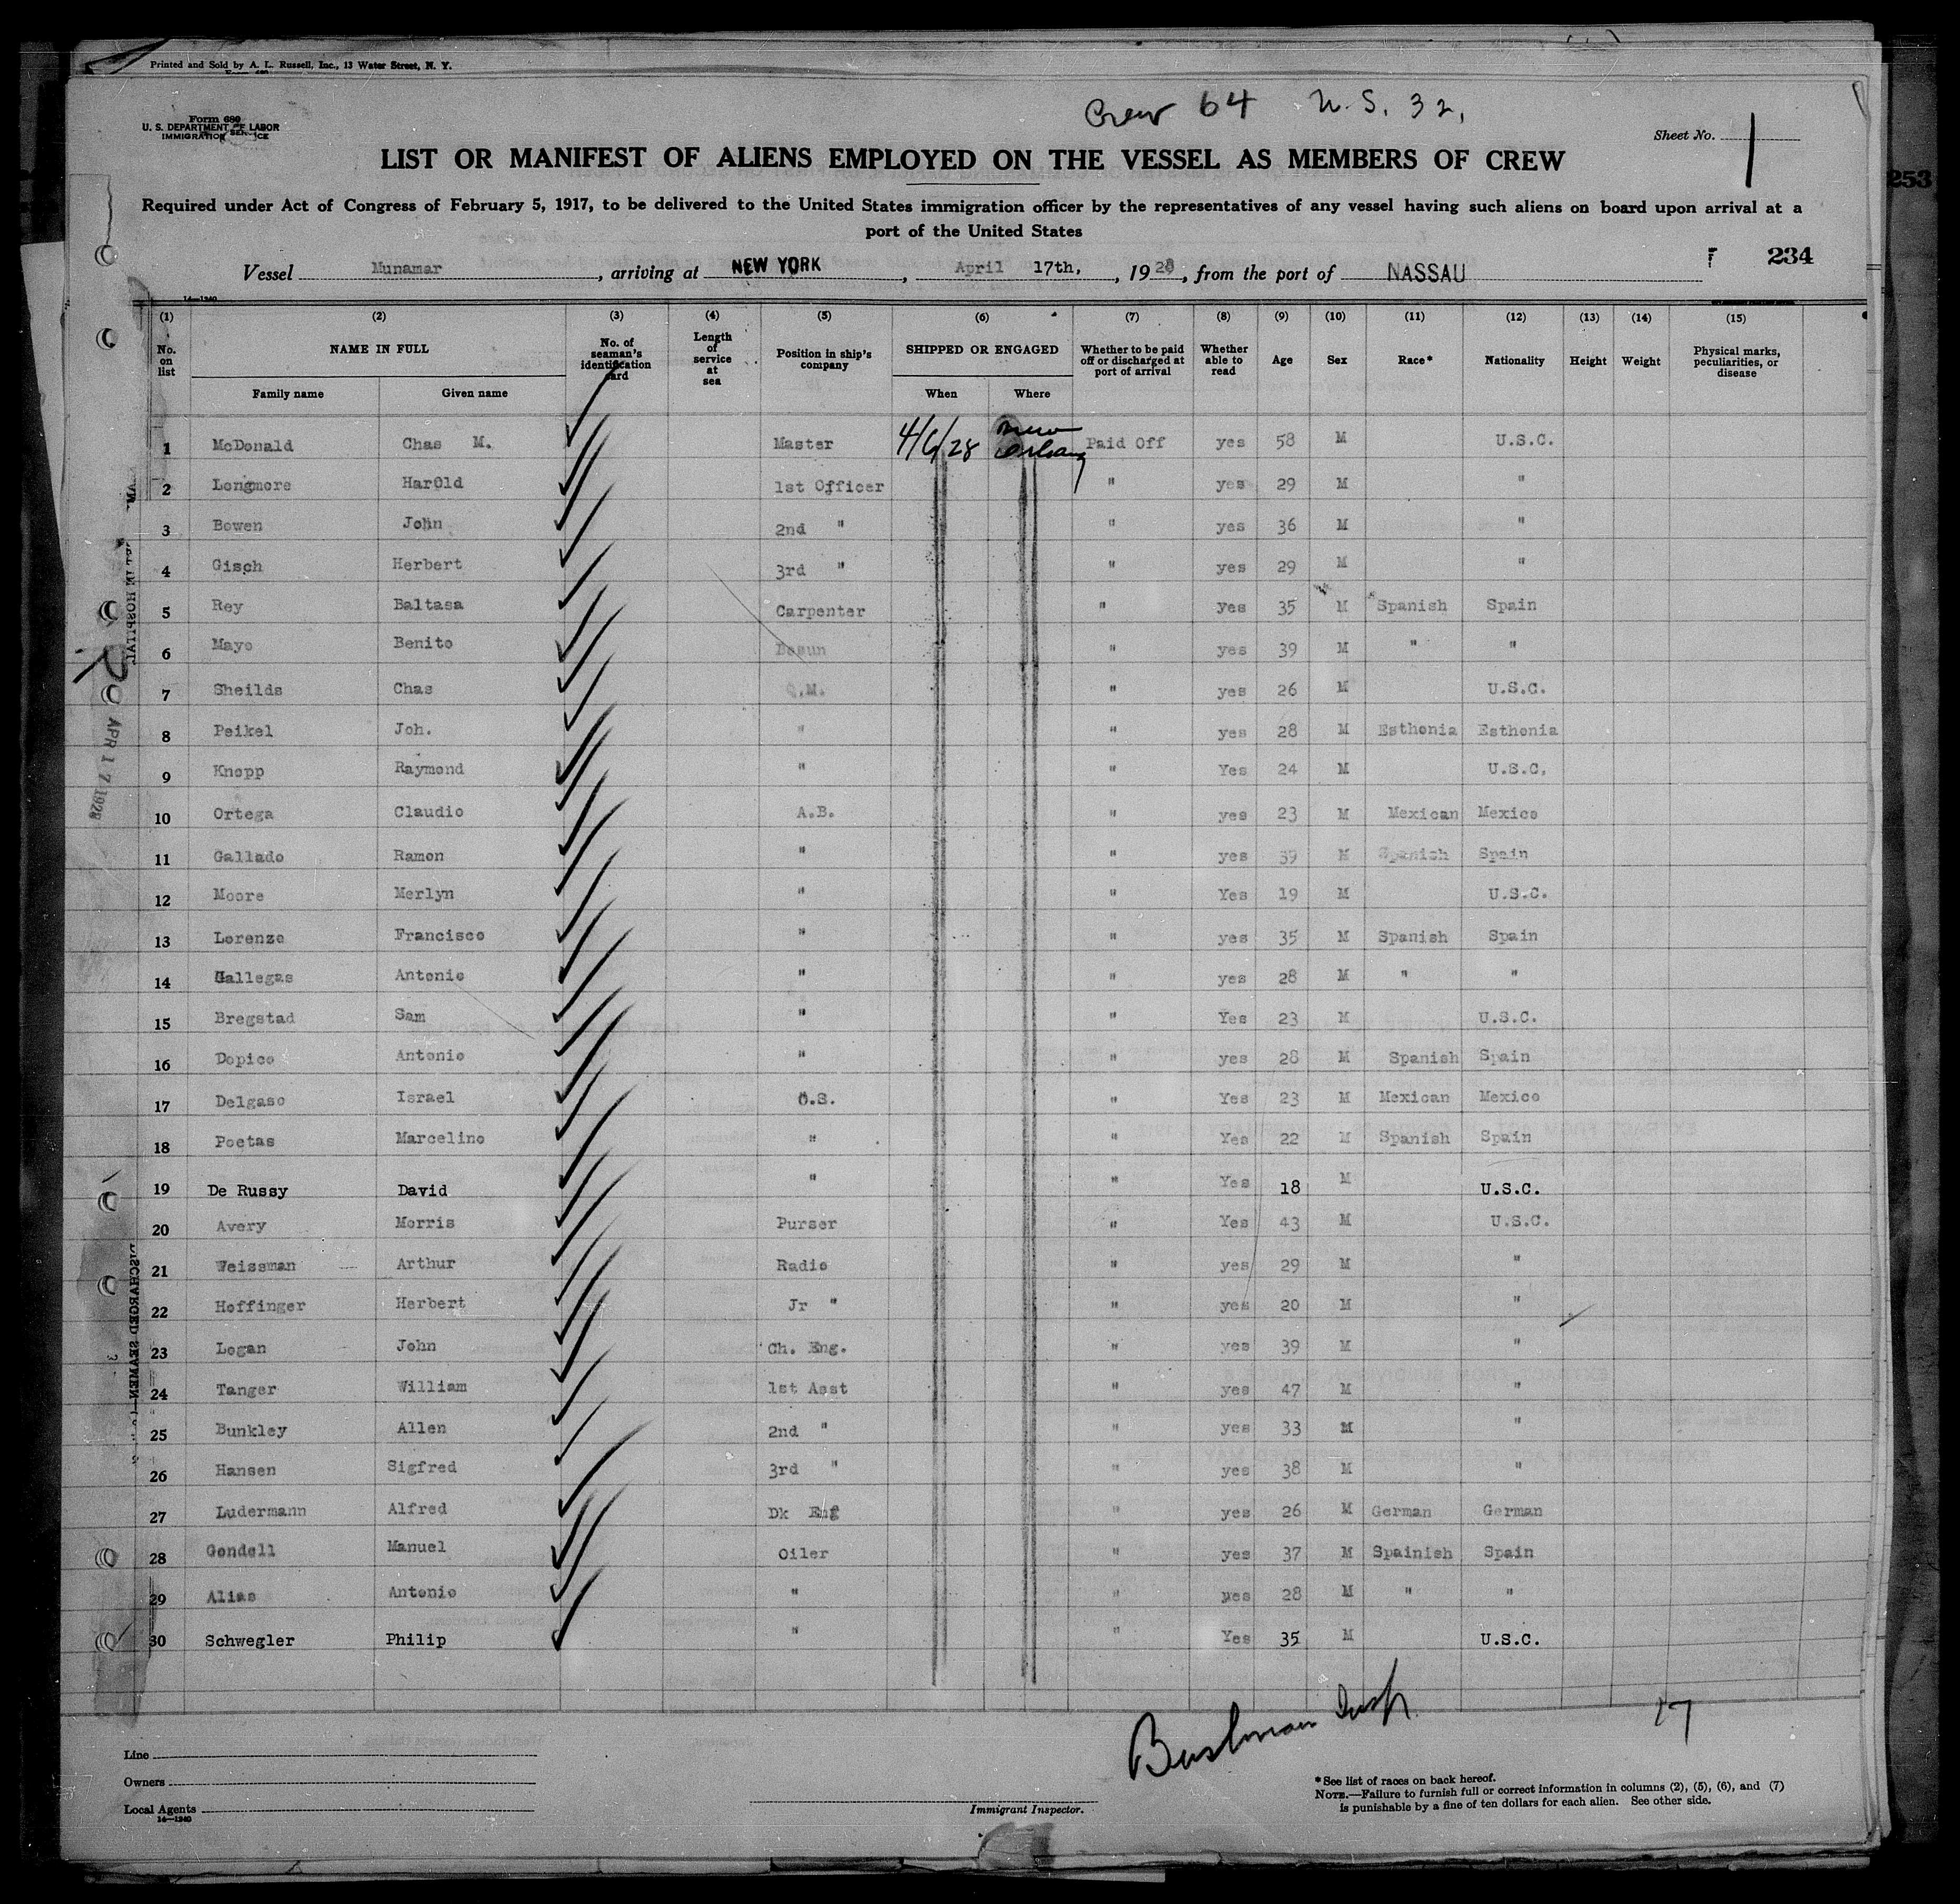 Printed and Sold by A. L. Russell, Inc., 13 Water Street, N. Y.
Form 680
U. S. DEPARTMENT OF LABOR
IMMIGRATION SERVICE
Crew 64 U. S. 32.
Sheet No. 1
LIST OR MANIFEST OF ALIENS EMPLOYED ON THE VESSEL AS MEMBERS OF CREW
253
Required under Act of Congress of February 5, 1917, to be delivered to the United States immigration officer by the representatives of any vessel having such aliens on board upon arrival at a
port of the United States
234
Vessel Munamar, arriving at NEW YORK, April 17th, 1928, from the port of NASSAU
14—1240
(1) (2) (3) (4) (5) (6) (7) (8) (9) (10) (11) (12) (13) (14) (15)
No. on list NAME IN FULL Family name Given name No. of seaman's identification card Length of service at sea Position in ship's company SHIPPED OR ENGAGED When Where Whether to be paid off or discharged at port of arrival Whether able to read Age Sex Race* Nationality Height Weight Physical marks, peculiarities, or disease
1 McDonald Chas M. Master 4/6/28 New Orleans Paid Off yes 58 M U.S.C.
2 Longmore Harold 1st Officer " yes 29 M "
3 Bowen John 2nd " " yes 36 M "
4 Gisch Herbert 3rd " " yes 29 M "
5 Rey Baltasa Carpenter " yes 35 M Spanish Spain
6 Mayo Benito Bosun " yes 39 M " "
7 Sheilds Chas Q.M. " yes 26 M U.S.C.
8 Peikel Joh. " " yes 28 M Esthonia Esthonia
9 Knopp Raymond " " Yes 24 M U.S.C.
10 Ortega Claudio A.B. " yes 23 M Mexican Mexico
11 Gallado Ramon " " yes 39 M Spanish Spain
12 Moore Merlyn " " Yes 19 M U.S.C.
13 Lorenzo Francisco " " yes 35 M Spanish Spain
14 Gallegas Antonio " " yes 28 M " "
15 Bregstad Sam " " Yes 23 M U.S.C.
16 Dopico Antonio " " yes 28 M Spanish Spain
17 Delgaso Israel O.S. " Yes 23 M Mexican Mexico
18 Poetas Marcelino " " Yes 22 M Spanish Spain
19 De Russy David " " Yes 18 M U.S.C.
20 Avery Morris Purser " Yes 43 M U.S.C.
21 Weissman Arthur Radio " yes 29 M "
22 Hoffinger Herbert Jr " " yes 20 M "
23 Logan John Ch. Eng. " yes 39 M "
24 Tanger William 1st Asst " yes 47 M "
25 Bunkley Allen 2nd " " yes 33 M "
26 Hansen Sigfred 3rd " " yes 38 M "
27 Ludermann Alfred Dk Eng " yes 26 M German German
28 Gondell Manuel Oiler " yes 37 M Spainish Spain
29 Alias Antonio " " yes 28 M " "
30 Schwegler Philip " " Yes 35 M U.S.C.
APR 17 1928
DISCHARGED SEAMEN
Bushman Insp.
17
Line
Owners
Local Agents
14—1240
Immigrant Inspector.
*See list of races on back hereof.
NOTE.—Failure to furnish full or correct information in columns (2), (5), (6), and (7)
is punishable by a fine of ten dollars for each alien. See other side.